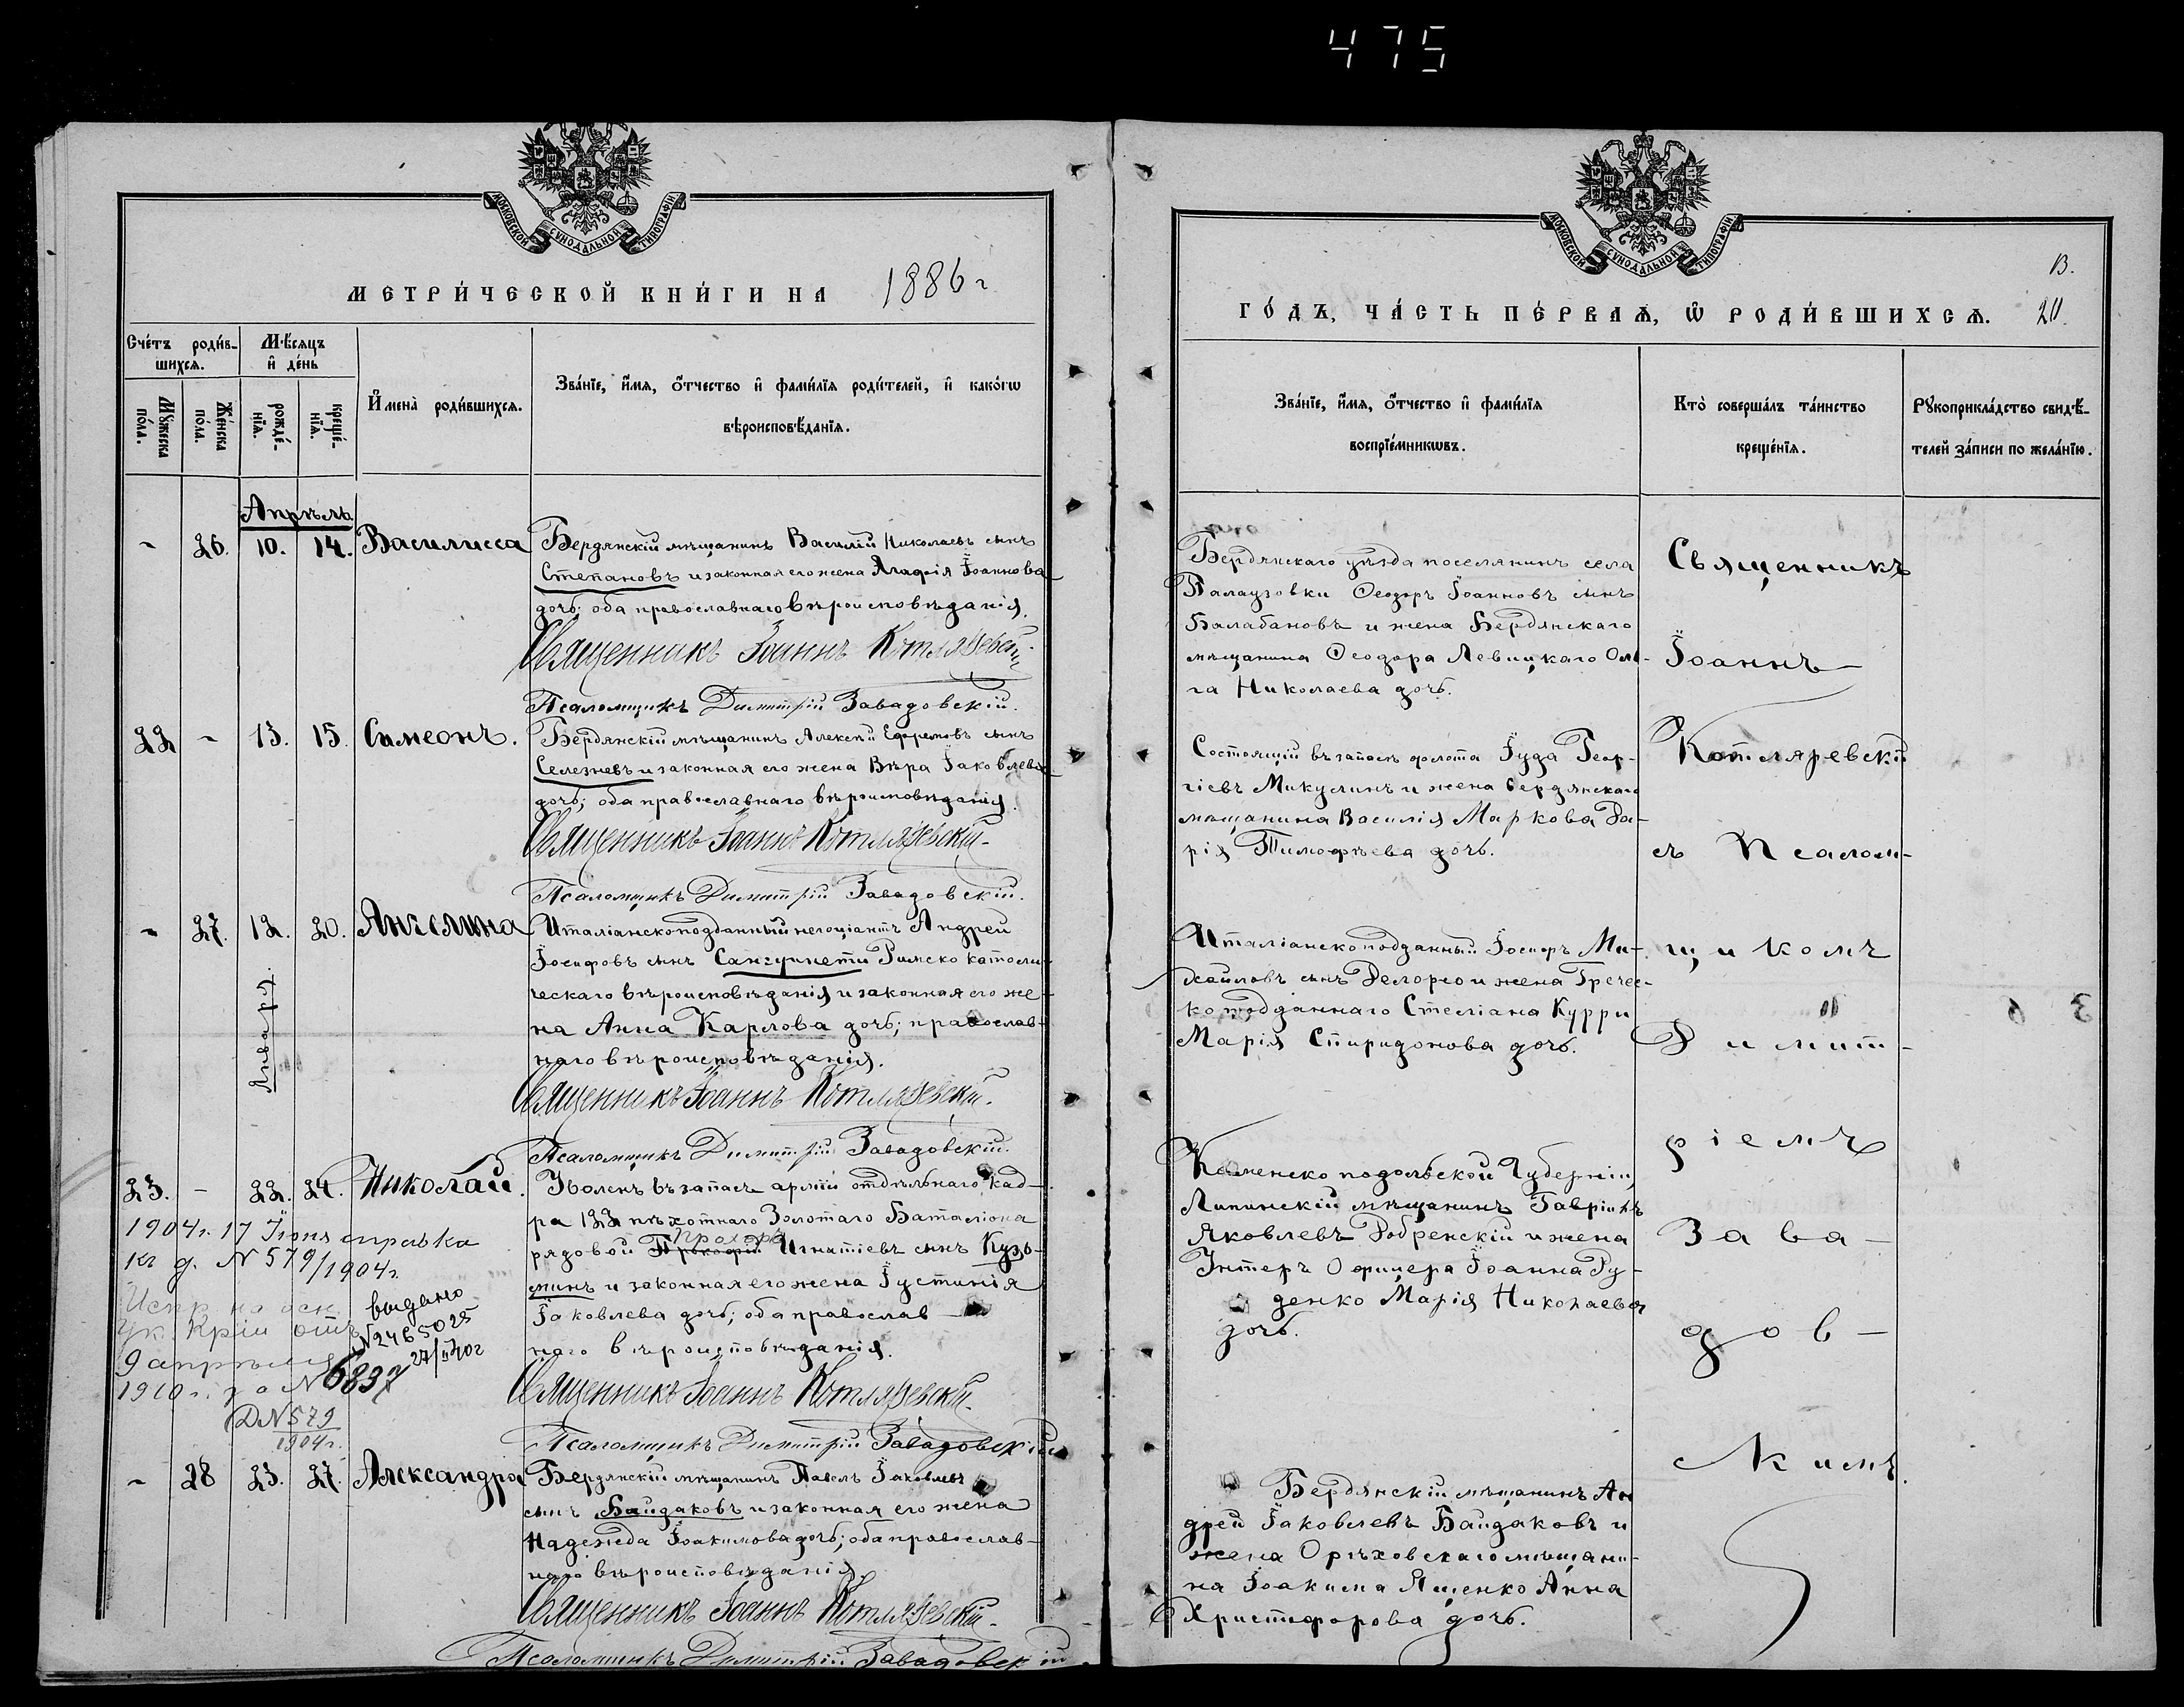 475
МОСКОВСКОЙ СУНОДАЛЬНОЙ ТИПОГРАФІИ
МЕТРИ́ЧЕСКОЙ КНИ́ГИ НА 1886 г
Сче́тъ роди́в-
шихсѧ.
Мѣ́сѧцъ
и҆ де́нь
Мꙋ́жеска
по́ла.
Же́нска
по́ла.
рожде́-
нїѧ.
креще́-
нїѧ.
И҆мена̀ роди́вшихсѧ.
Зва́нїе, и҆́мѧ, ѻ҆́тчество и҆ фами́лїѧ роди́телей, и҆ како́гѡ
вѣроисповѣ́данїѧ.
Апрѣль
- 26. 10. 14. Василисса
Бердянскій мѣщанинъ Василій Николаевъ сынъ
Степановъ и законная его жена Агафія Іоаннова
дочь; оба православнаго вѣроисповѣданія.
Священникъ Іоаннъ Котляревскій.
Псаломщикъ Димитрій Завадовскій.
22 - 13. 15. Симеонъ.
Бердянскій мѣщанинъ Алексѣй Ефремовъ сынъ
Селезневъ и законная его жена Вѣра Іаковлева
дочь; оба православнаго вѣроисповѣданія.
Священникъ Іоаннъ Котляревскій.
Псаломщикъ Димитрій Завадовскій.
- 27. 12. 20. Ангелина
Января.
Италіанскоподданный негоціантъ Андрей
Іосифовъ сынъ Сангуинети Римско католи-
ческаго вѣроисповѣданія и законная его же-
на Анна Карлова дочь; православ-
наго вѣроисповѣданія.
Священникъ Іоаннъ Котляревскій.
Псаломщикъ Димитрій Завадовскій.
23. - 22. 24. Николай.
Уволенъ въ запасъ арміи отдѣльнаго кад-
ра 122 пѣхотнаго Золотаго Баталіона
Прохоръ
рядовой Прокофій Игнатіевъ сынъ Кузь-
минъ и законная его жена Іустинія
Іаковлева дочь; оба православ-
наго вѣроисповѣданія.
Священникъ Іоаннъ Котляревскій.
Псаломщикъ Димитрій Завадовскій
1904 г. 17 Іюня справка
къ д. N 579/1904 г.
Испр. на осн.
Ук. отъ
9 апрѣля
1910 г. за N 6837
Д N 579
1904 г.
выдано
- 28 23. 27. Александра
Бердянскій мѣщанинъ Павелъ Іаковлевъ
сынъ Байдаковъ и законная его жена
Надежда Іоакимова дочь; оба православ-
наго вѣроисповѣданія.
Священникъ Іоаннъ Котляревскій.
Псаломщикъ Димитрій Завадовскій
МОСКОВСКОЙ СУНОДАЛЬНОЙ ТИПОГРАФІИ
ГО́ДЪ, ЧА́СТЬ ПЕ́РВАѦ, Ѡ҆ РОДИ́ВШИХСѦ. 20.
Зва́нїе, и҆́мѧ, ѻ҆́тчество и҆ фами́лїѧ
воспрїе́мникѡвъ.
Кто̀ соверша́лъ та́инство
креще́нїѧ.
Рꙋкоприкла́дство свидѣ́-
телей за́писи по жела́нїю.
Бердянскаго уѣзда поселянинъ села
Палаузовки Ѳеодоръ Іоанновъ сынъ
Балабановъ и жена Бердянскаго
мѣщанина Ѳеодора Левицкаго Оль-
га Николаева дочь.
Состоящій въ запасѣ флота Іуда Геор-
гіевъ Микулинъ и жена бердянскаго
мѣщанина Василія Маркова Да-
рія Тимофѣева дочь.
Италіанскоподданный Іосифъ Ми-
хайловъ сынъ Делорео и жена Гречес-
коподданнаго Стеліана Курри
Марія Спиридонова дочь.
Каменскоподольской Губерніи,
Липинскій мѣщанинъ Гавріилъ
Яковлевъ Добренскій и жена
Унтеръ Офицера Іоанна Ру-
денко Марія Николаева
дочь.
Бердянскій мѣщанинъ Ан
дрей Іаковлевъ Байдаковъ и
жена Орѣховскаго мѣщани-
на Іоакима Ященко Анна
Христофорова дочь.
Священникъ
Іоаннъ
Котляревскій
съ Псалом-
щикомъ
Димит-
ріемъ
Зава-
дов-
скимъ.